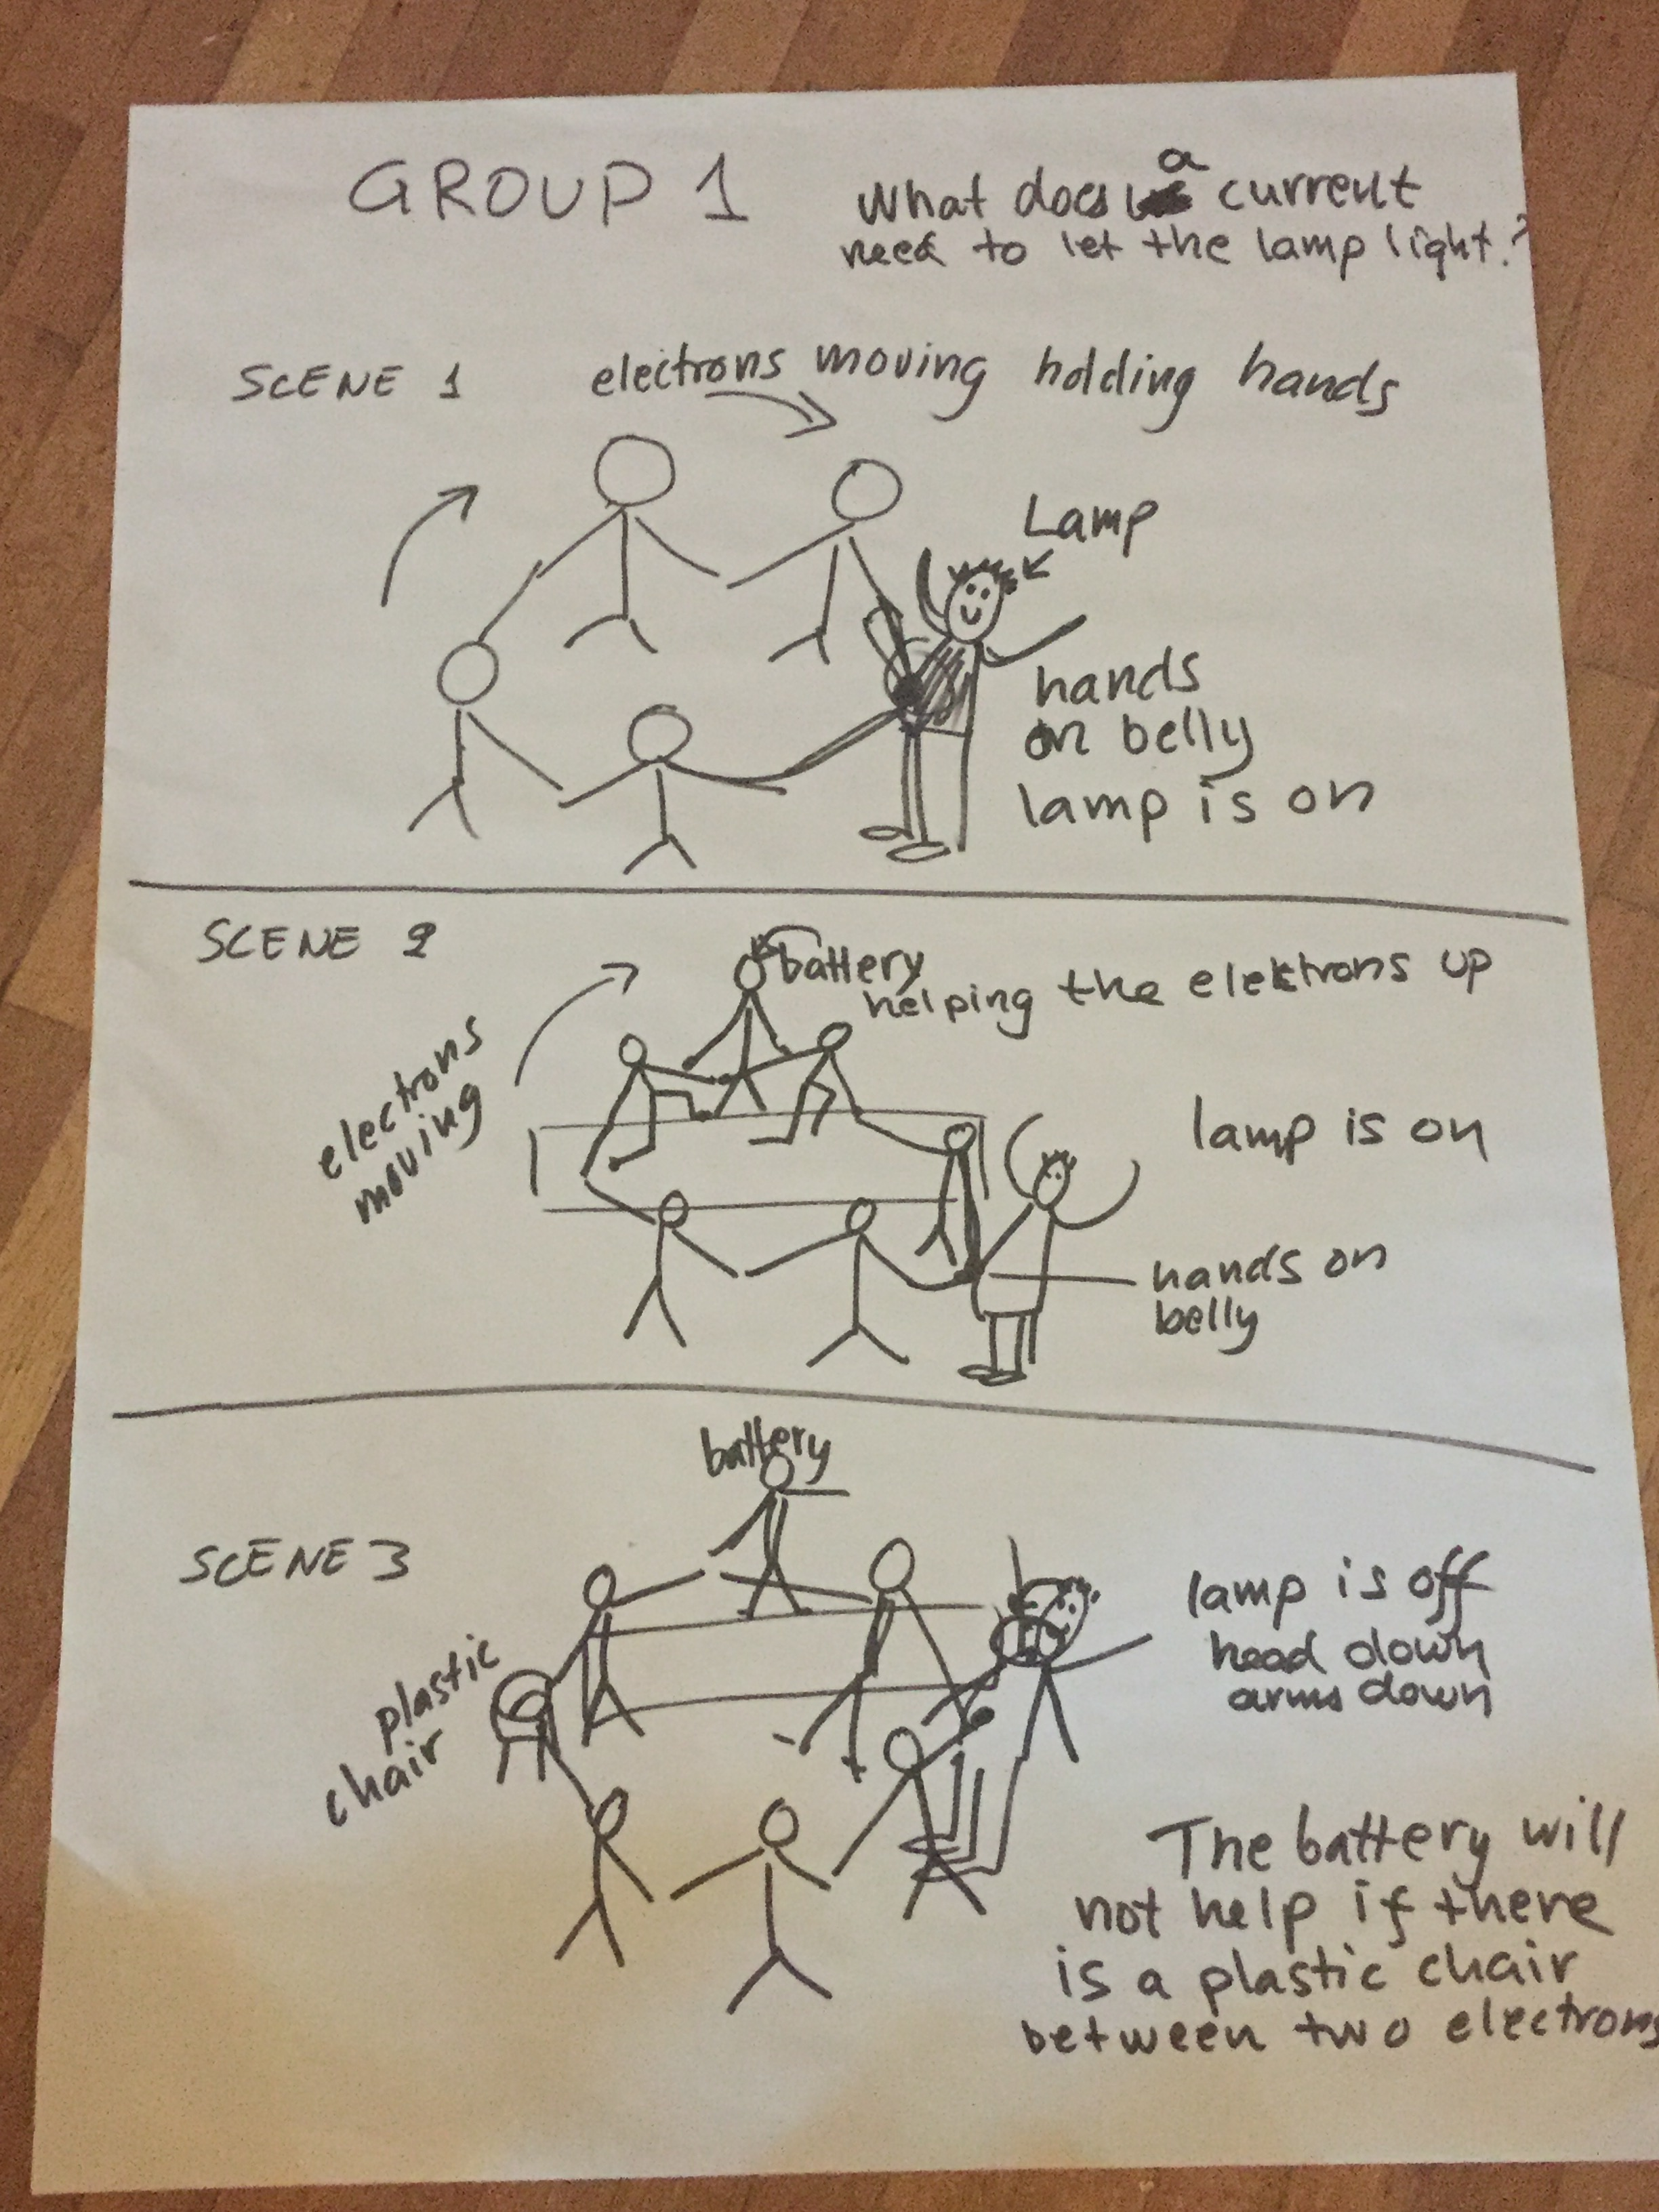 GROUP 1
What does a current
need to let the lamp light?
SCENE 1
electrons moving holding hands
Lamp
hands
on belly
lamp is on
SCENE 2
battery
helping the elektrons up
electrons
moving
lamp is on
hands on
belly
battery
SCENE 3
plastic
chair
lamp is off
head down
arms down
The battery will
not help if there
is a plastic chair
between two electrons